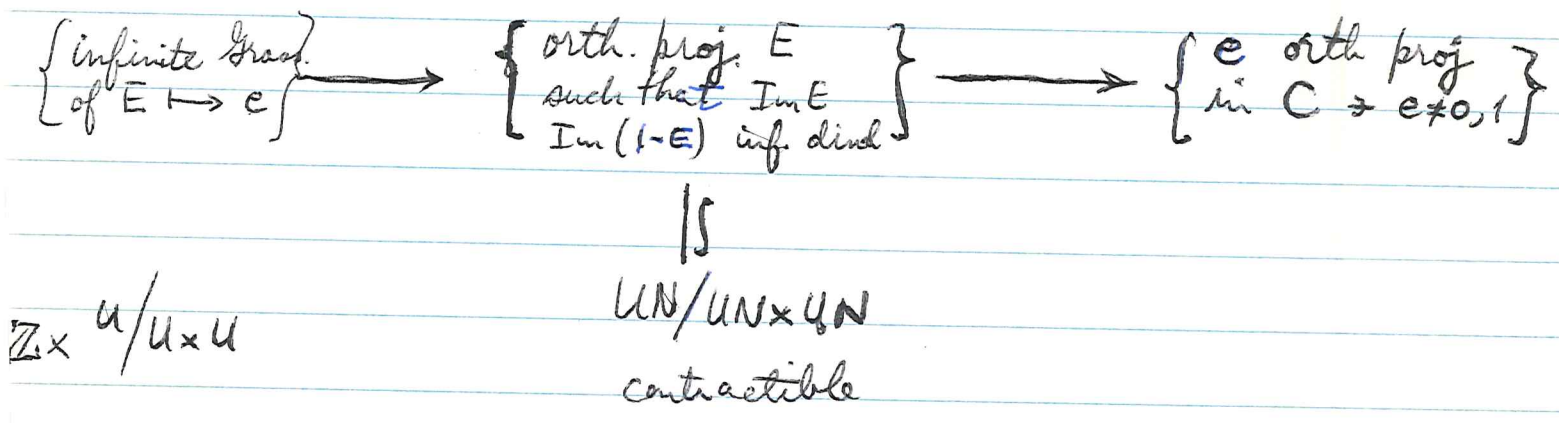 { infinite Grass. of E ⟼ e } ⟶ { orth. proj. E such that Im E Im (1-E) inf. diml } ⟶ { e orth proj in C ∋ e≠0,1 }
|S
ℤ× U/U×U
UN/UN×UN
contractible